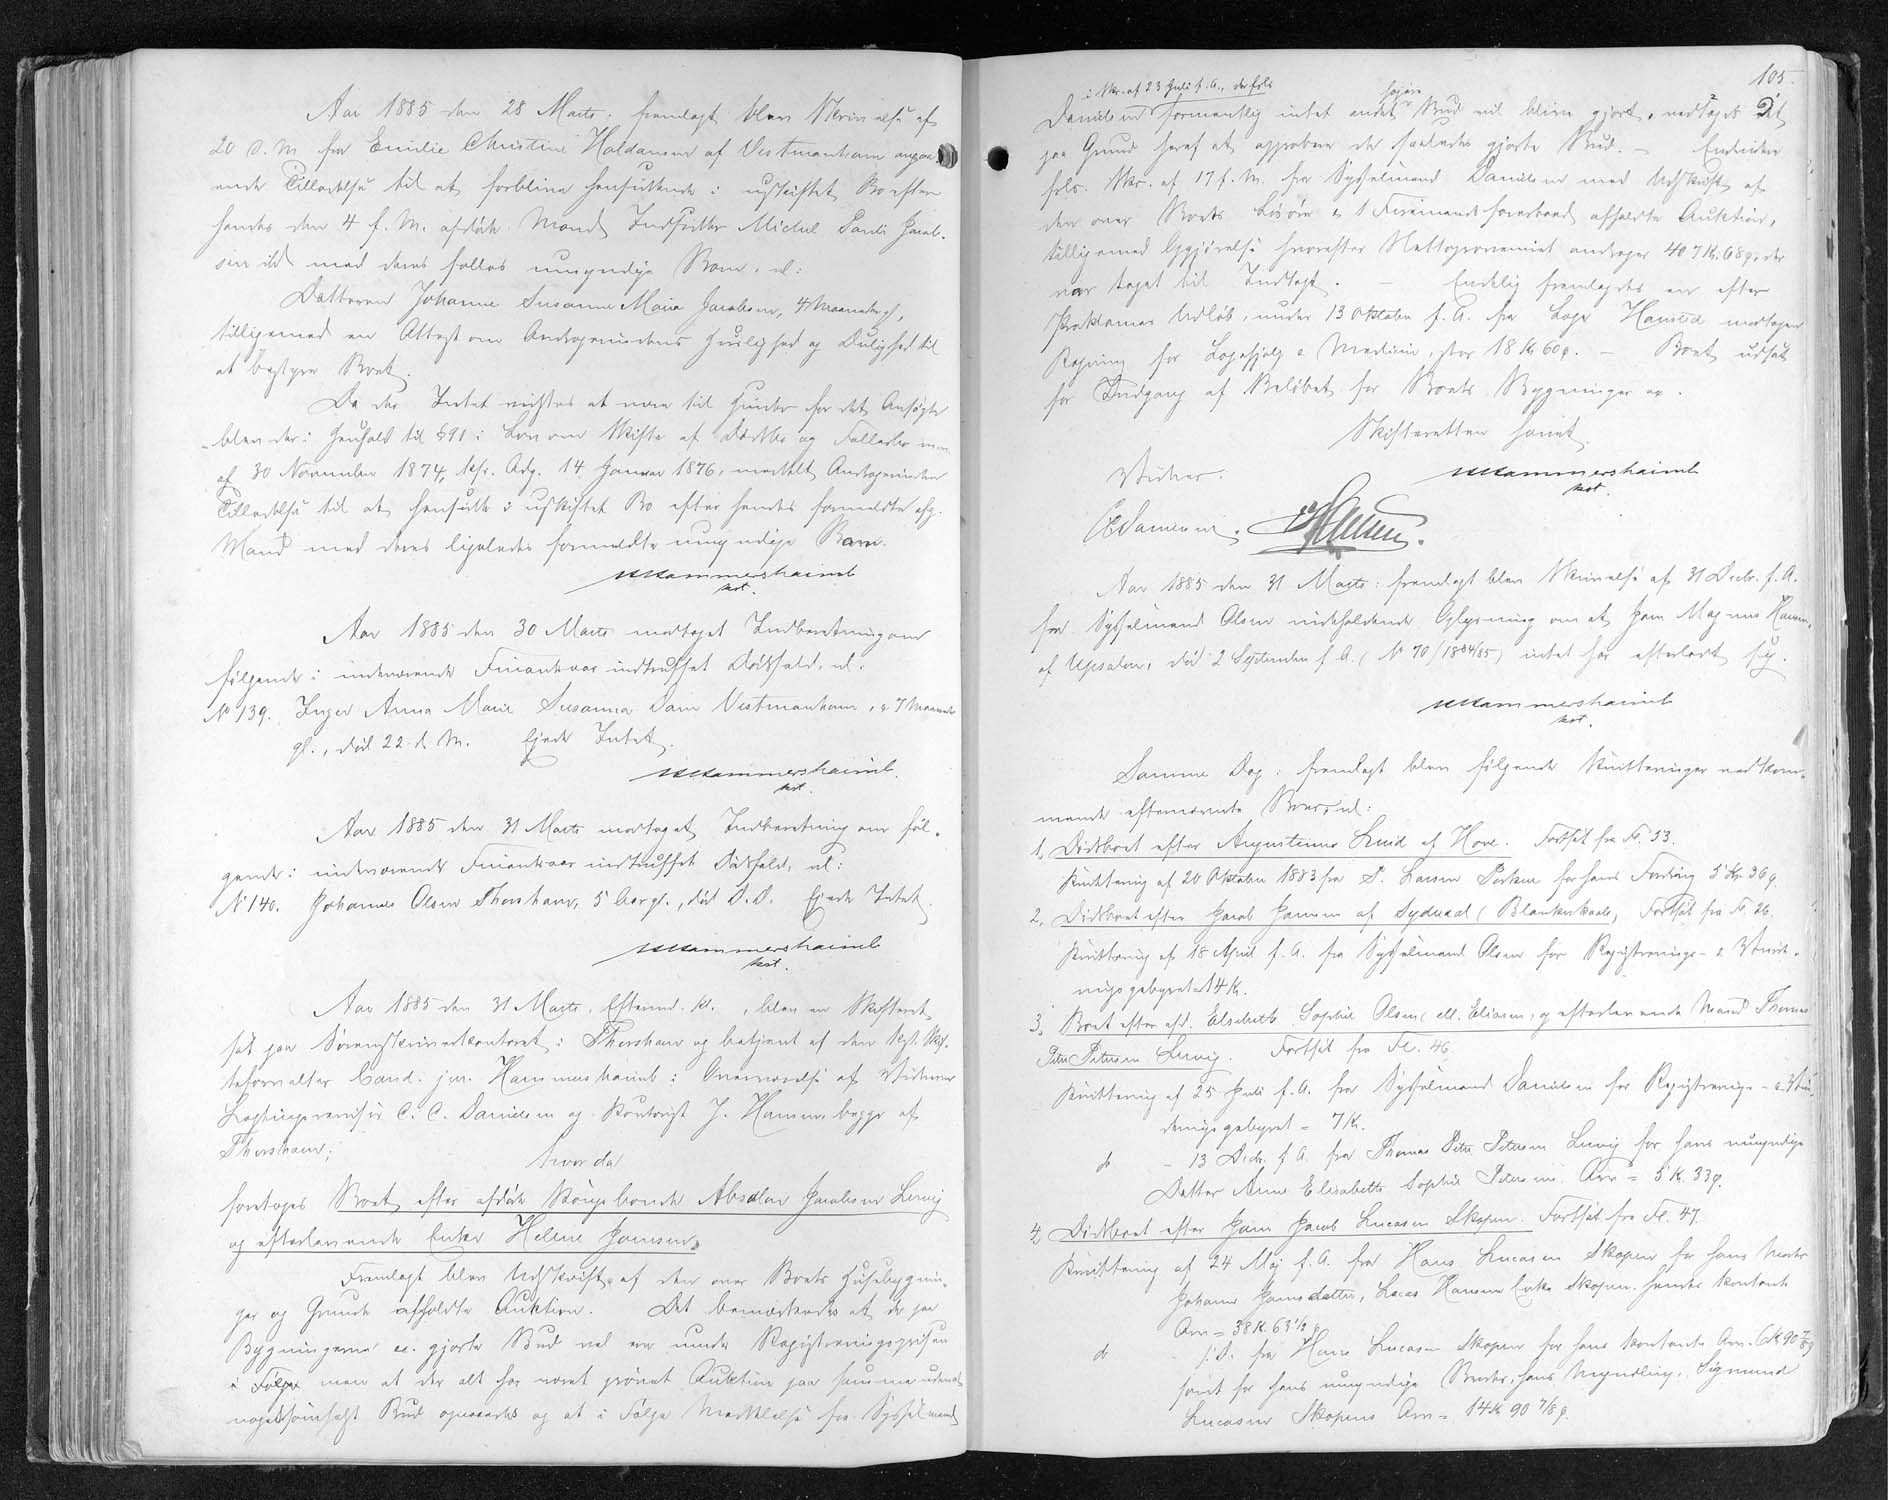 Aar 1885 den 28 Marts: fremlagt blev Skrivelse af
20 d. M. fra Emilie Christine Haldansen af Vestmanhavn angaa-
ende Tilladelse til at forblive hensiddende i uskiftet Bo efter
hendes den 4 f. M. afdøde Mand, Indsidder Michel Pauli Jacob-
sen med deres fælles umyndige Barn, nl:
Datteren Johanne Susanne Marie Jacobsen, 4 Maaneder gl.,
tilligemed en Attest om Andragerindens Huslighed og Dulighed til
at bestyre Boet.
Da der Intet vidstes at være til Hinder for det Ansøgte
blev der i Henhold til §91 i Lov om Skifte af Dødsbo og Fællesbo m.m.
af 30 November 1874, kfr. Adg. 14 Januar 1876, meddelt Andragerinden
Tilladelse til at hensidde i uskiftet Bo efter hendes formeldte afg.
Mand med deres ligeledes formeldte umyndige Barn.
Hammershaimb
kst.
Aar 1885 den 30 Marts modtaget Indberetning om
følgende i indeværende Finantsaar indtruffet Dødsfald, nl.
№ 139. Inger Anna Marie Susanna Dam Vestmanhavn, 7 Maaneder
gl., død 22 d. M. Ejede Intet.
Hammershaimb
kst.
Aar 1885 den 31 Marts modtaget Indberetning om føl-
gende i indeværende Finantsaar indtruffet Dødsfald, nl:
№ 140. Johannes Olsen Thorshavn, 5 Aar gl., død D. D. Ejede Intet.
Hammershaimb
kst.
Aar 1885 den 31 Marts, Efterm. Kl. , blev en Skifteret
sat paa Sorenskriverkontoret i Thorshavn og betjent af den kst. Skif-
teforvalter Cand. jur. Hammershaimb i Overværelse af Vidnerne
Lagtingsrevisor C. C. Danielsen og Kontorist J. Hansen begge af
Thorshavn;
hvorda
foretoges Boet efter afdøde Kongsbonde Absalon Jacobsen Lervig
og efterlevende Enke Helene Joensen.
Fremlagt blev Udskrift af den over Boets Husebygnin-
ger og Grunde afholdte Auktion. Det bemærkedes at de paa
Bygningerne gjorte Bud vel er under Registreringsprisen
men at der alt har været prøvet Auktion paa samme uden
nogetsomhelst Bud opnaaedes og at i Følge Meddelelse fra Sysselmand
105.
i Skr. af 23 Juli f. A., der fdls
højere
Danielsen formentlig intet andet Bud vil blive gjort, vedtoges det
paa Grund heraf at approbere det saaledes gjorte Bud. — Endvidere
fdls. Skr. af 17 f. M. fra Sysselmand Danielsen med Udskrift af
den over Boets Løsøre & 1 Færemandsforerbaad afholdte Auktion,
tilligemed Opgjørelse hvorefter Nettoprovenuet andrager 407 Kr. 68 ø, der
var taget til Indtægt. — Endelig fremlagdes en efter
Proklamas Udløb, under 13 Oktober f. A. fra Læge Hansted modtagen
Regning for Lægehjælp & Medicin, stor 18 Kr 60 ø. — Boet udsat
for Indgang af Beløbet for Boets Bygninger
Skifteretten hævet.
Vidner: Hammershaimb
kst.
CCDanielsen. JHansen.
Aar 1885 den 31 Marts: fremlagt blev Skrivelse af 31 Decbr. f. A.
fra Sysselmand Olsen indeholdende Oplysning om at Joen Magnus Hansen
af Upsalen, død 2 September f. A. (№ 70/1884/85) intet har efterladt sig.
Hammershaimb
kst.
Samme Dag: fremlagt blev følgende Kvitteringer vedkom-
mende efternævnte Boer, nl:
1, Dødsboet efter Augustinus Lund af Hove. Fortsat fra Fl. 53.
Kvittering af 20 Oktober 1883 fra P. Larsen Porkere for hans Fordring 5 Kr 36 ø.
2, Dødsboet efter Jacob Joensen af Sydradal (Blankeskaale), Fortsat fra Fl. 26.
Kvittering af 18 April f. A. fra Sysselmand Olsen for Registrerings- & Vurde-
ringsgebyret = 14 Kr.
3, Boet efter afd. Elsebeth Sophie Olsen, ell. Eliasen, og efterlevende Mand Thomas
Peter Petersen Lervig. Fortsat fra Fl. 46.
Kvittering af 25 Juli f. A. fra Sysselmand Danielsen for Registrerings- & Vur-
deringsgebyret = 7 Kr.
do - 13 Decbr. f. A. fra Thomas Peter Petersen Lervig for hans umyndige
Datter Anne Elisabeth Sophie Petersens Arv = 5 Kr. 33 ø.
4, Dødsboet efter Joen Jacob Lucasen Skopen. Fortsat fra Fl. 47.
Kvittering af 24 Maj f. A. fra Hans Lucasen Skopen for hans Moder
Johanne Joensdatter, Lucas Hansens Enke Skopen hendes kontante
Arv = 38 Kr. 63 1/2 ø
do - s. D. fra Hans Lucasen Skopen for hans kontante Arv 6 Kr 90 7/8 ø
samt for hans umyndige Broder, hans Myndling, Sigmund
Lucasen Skopens Arv = 14 Kr 90 7/8 ø.